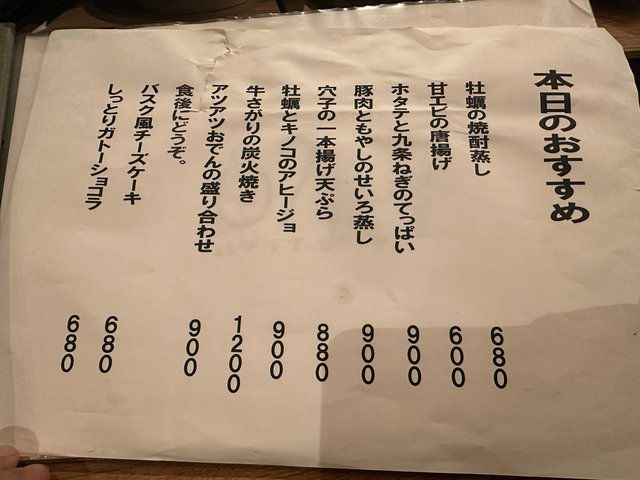 本日のおすすめ
牡蠣の焼酎蒸し 680
甘エビの唐揚げ 600
ホタテと九条ねぎのてっぱい 900
豚肉ともやしのせいろ蒸し 900
穴子の一本揚げ天ぷら 880
牡蠣とキノコのアヒージョ 900
牛さがりの炭火焼き 1200
アツアツおでんの盛り合わせ 900
食後にどうぞ。
バスク風チーズケーキ 680
しっとりガトーショコラ 680